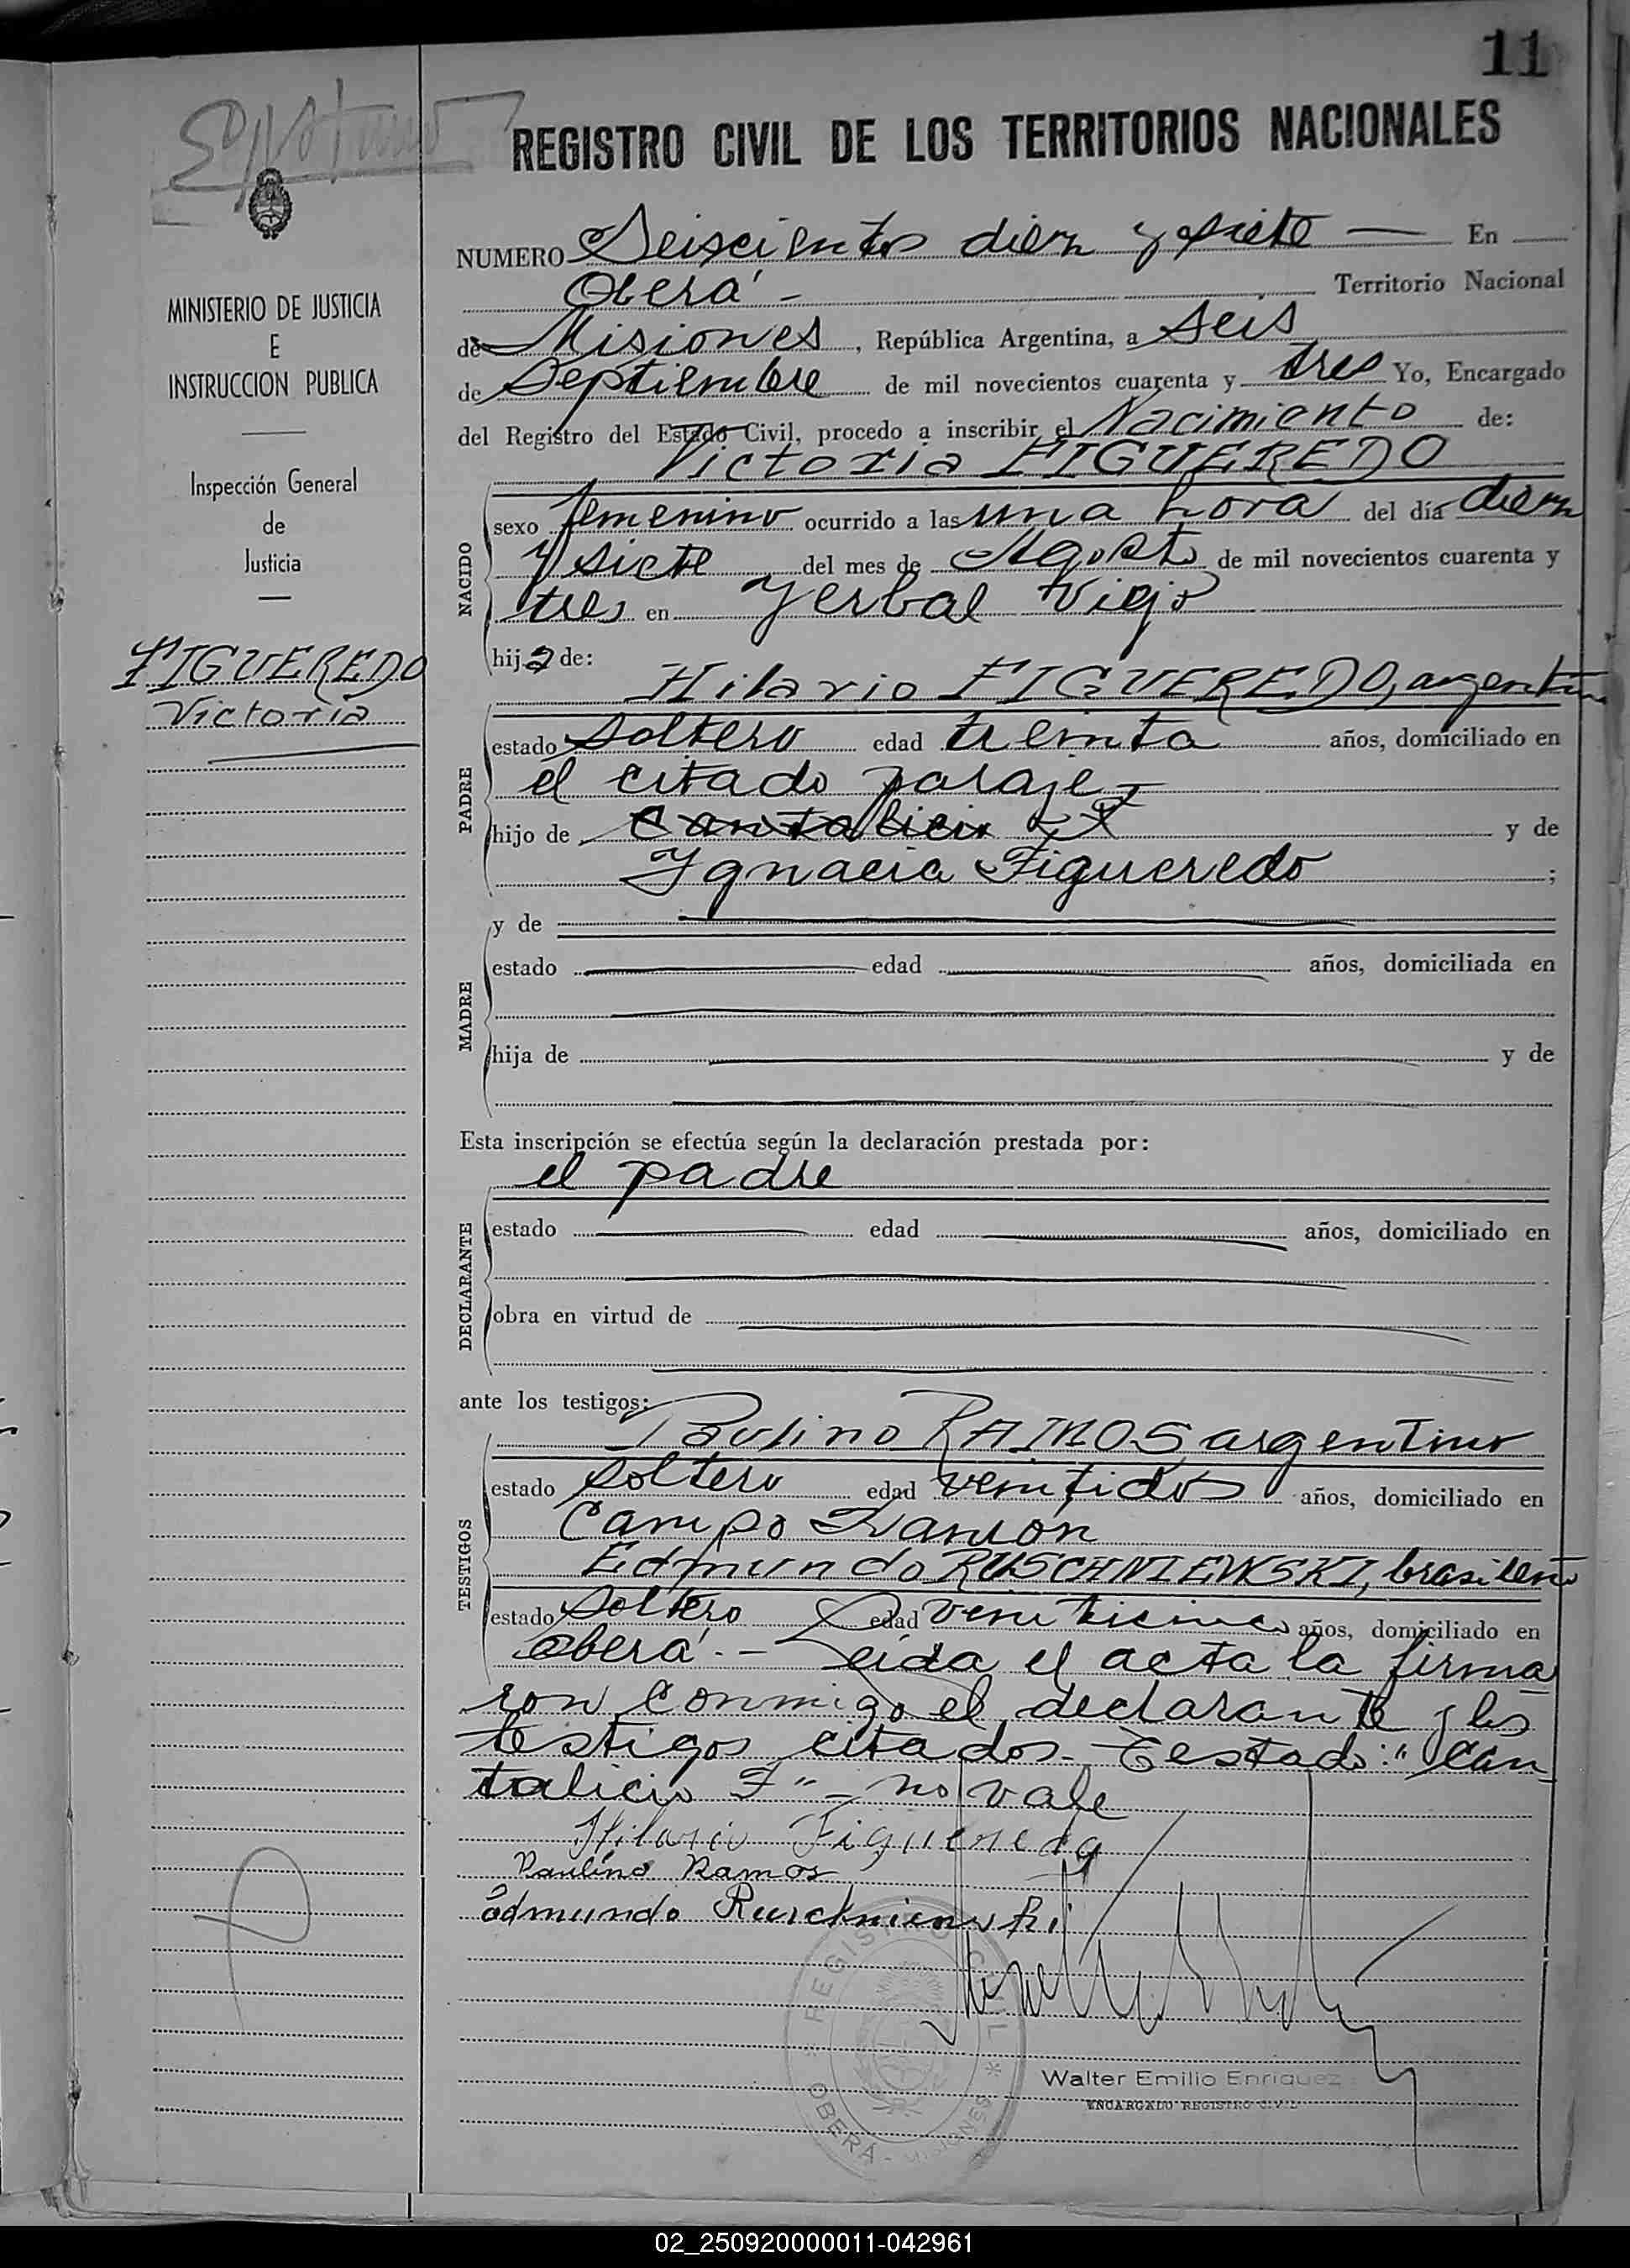 11
REGISTRO CIVIL DE LOS TERRITORIOS NACIONALES
NUMERO Seiscientos diez y siete — En
Oberá - Territorio Nacional
de Misiones, República Argentina, a Seis
de Septiembre de mil novecientos cuarenta y tres Yo, Encargado
del Registro del Estado Civil, procedo a inscribir el Nacimiento de:
Victoria FIGUEREDO
MINISTERIO DE JUSTICIA
E
INSTRUCCION PUBLICA
Inspección General
de
Justicia
FIGUEREDO
Victoria
NACIDO
sexo femenino ocurrido a las una hora del día diez
y siete del mes de Agosto de mil novecientos cuarenta y
tres en Yerbal Viejo
hija de:
Hilario FIGUEREDO, argentino
PADRE
estado soltero edad treinta años, domiciliado en
el citado paraje -
hijo de Cantalicio F y de
Ygnacia Figueredo ;
MADRE
y de
estado edad años, domiciliada en
hija de y de
Esta inscripción se efectúa según la declaración prestada por:
el padre
DECLARANTE
estado edad años, domiciliado en
obra en virtud de
ante los testigos:
Paulino RAMOS argentino
TESTIGOS
estado soltero edad veintidos años, domiciliado en
Campo Ramón
Edmundo RUSCHNIEWSKI, brasileño
estado soltero edad veinticinco años, domiciliado en
Oberá. - Leida el acta la firma
ron conmigo el declarante y los
testigos citados - Testado: "Can
talicio F" - no vale
Hilario Figueredo
Paulino Ramos
Edmundo Ruschniewski
REGISTRO CIVIL
* OBERÁ - MISIONES *
Walter Emilio Enriquez
ENCARGADO REGISTRO CIVIL
02_250920000011-042961